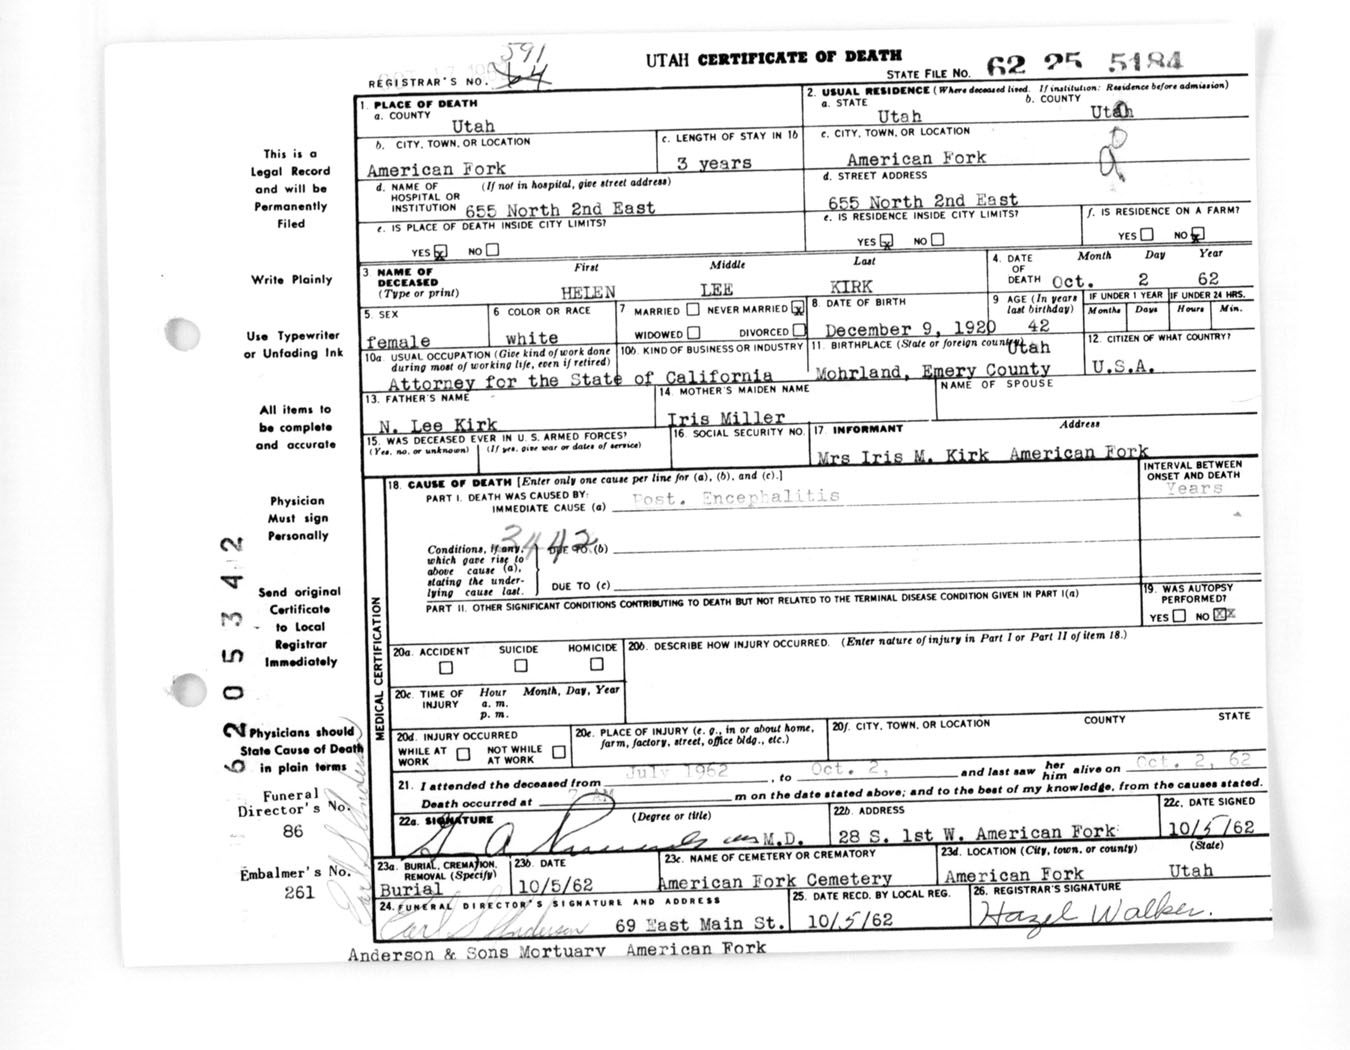 591
UTAH CERTIFICATE OF DEATH
REGISTRAR'S NO. 64
STATE FILE NO. 62 25 5184
1. PLACE OF DEATH
a. COUNTY
Utah
2. USUAL RESIDENCE (Where deceased lived. If institution: Residence before admission)
a. STATE
Utah
b. COUNTY
Utah
b. CITY, TOWN, OR LOCATION
American Fork
c. LENGTH OF STAY IN 1b
3 years
c. CITY, TOWN, OR LOCATION
American Fork
d. NAME OF HOSPITAL OR INSTITUTION (If not in hospital, give street address)
655 North 2nd East
d. STREET ADDRESS
655 North 2nd East
e. IS PLACE OF DEATH INSIDE CITY LIMITS?
YES x NO
e. IS RESIDENCE INSIDE CITY LIMITS?
YES x NO
f. IS RESIDENCE ON A FARM?
YES NO x
3. NAME OF DECEASED (Type or print)
First Middle Last
HELEN LEE KIRK
4. DATE OF DEATH
Month Day Year
Oct. 2 62
5. SEX
female
6 COLOR OR RACE
white
7 MARRIED NEVER MARRIED x
WIDOWED DIVORCED
8. DATE OF BIRTH
December 9, 1920
9 AGE (In years last birthday)
42
IF UNDER 1 YEAR
Months Days
IF UNDER 24 HRS.
Hours Min.
10a. USUAL OCCUPATION (Give kind of work done during most of working life, even if retired)
10b. KIND OF BUSINESS OR INDUSTRY
Attorney for the State of California
11. BIRTHPLACE (State or foreign country)
Utah
Mohrland, Emery County
12. CITIZEN OF WHAT COUNTRY?
U.S.A.
13. FATHER'S NAME
N. Lee Kirk
14. MOTHER'S MAIDEN NAME
Iris Miller
NAME OF SPOUSE
15. WAS DECEASED EVER IN U. S. ARMED FORCES?
(Yes, no, or unknown) (If yes, give war or dates of service)
16. SOCIAL SECURITY NO.
17 INFORMANT Address
Mrs Iris M. Kirk American Fork
MEDICAL CERTIFICATION
18. CAUSE OF DEATH [Enter only one cause per line for (a), (b), and (c).]
PART I. DEATH WAS CAUSED BY:
IMMEDIATE CAUSE (a) Post. Encephalitis
INTERVAL BETWEEN ONSET AND DEATH
Years
3442
Conditions, if any, which gave rise to above cause (a), stating the underlying cause last.
DUE TO (b)
DUE TO (c)
PART II. OTHER SIGNIFICANT CONDITIONS CONTRIBUTING TO DEATH BUT NOT RELATED TO THE TERMINAL DISEASE CONDITION GIVEN IN PART I(a)
19. WAS AUTOPSY PERFORMED?
YES NO XX
20a. ACCIDENT SUICIDE HOMICIDE
20b. DESCRIBE HOW INJURY OCCURRED. (Enter nature of injury in Part I or Part II of item 18.)
20c. TIME OF INJURY
Hour Month, Day, Year
a. m.
p. m.
20d. INJURY OCCURRED
WHILE AT WORK NOT WHILE AT WORK
20e. PLACE OF INJURY (e. g., in or about home, farm, factory, street, office bldg., etc.)
20f. CITY, TOWN, OR LOCATION COUNTY STATE
21. I attended the deceased from July 1962, to Oct. 2, and last saw her him alive on Oct. 2, 62
Death occurred at 7 AM m on the date stated above; and to the best of my knowledge, from the causes stated.
22a. SIGNATURE (Degree or title)
M.D.
22b. ADDRESS
28 S. 1st W. American Fork
22c. DATE SIGNED
10/5/62
23a. BURIAL, CREMATION, REMOVAL (Specify)
Burial
23b. DATE
10/5/62
23c. NAME OF CEMETERY OR CREMATORY
American Fork Cemetery
23d. LOCATION (City, town, or county) (State)
American Fork Utah
24. FUNERAL DIRECTOR'S SIGNATURE AND ADDRESS
Earl S Anderson 69 East Main St.
25. DATE RECD. BY LOCAL REG.
10/5/62
26. REGISTRAR'S SIGNATURE
Hazel Walker.
Anderson & Sons Mortuary American Fork
This is a
Legal Record
and will be
Permanently
Filed
Write Plainly
Use Typewriter
or Unfading Ink
All items to
be complete
and accurate
Physician
Must sign
Personally
Send original
Certificate
to Local
Registrar
Immediately
Physicians should
State Cause of Death
in plain terms
Funeral
Director's No.
86
Embalmer's No.
261
Earl S Anderson
62 05 342